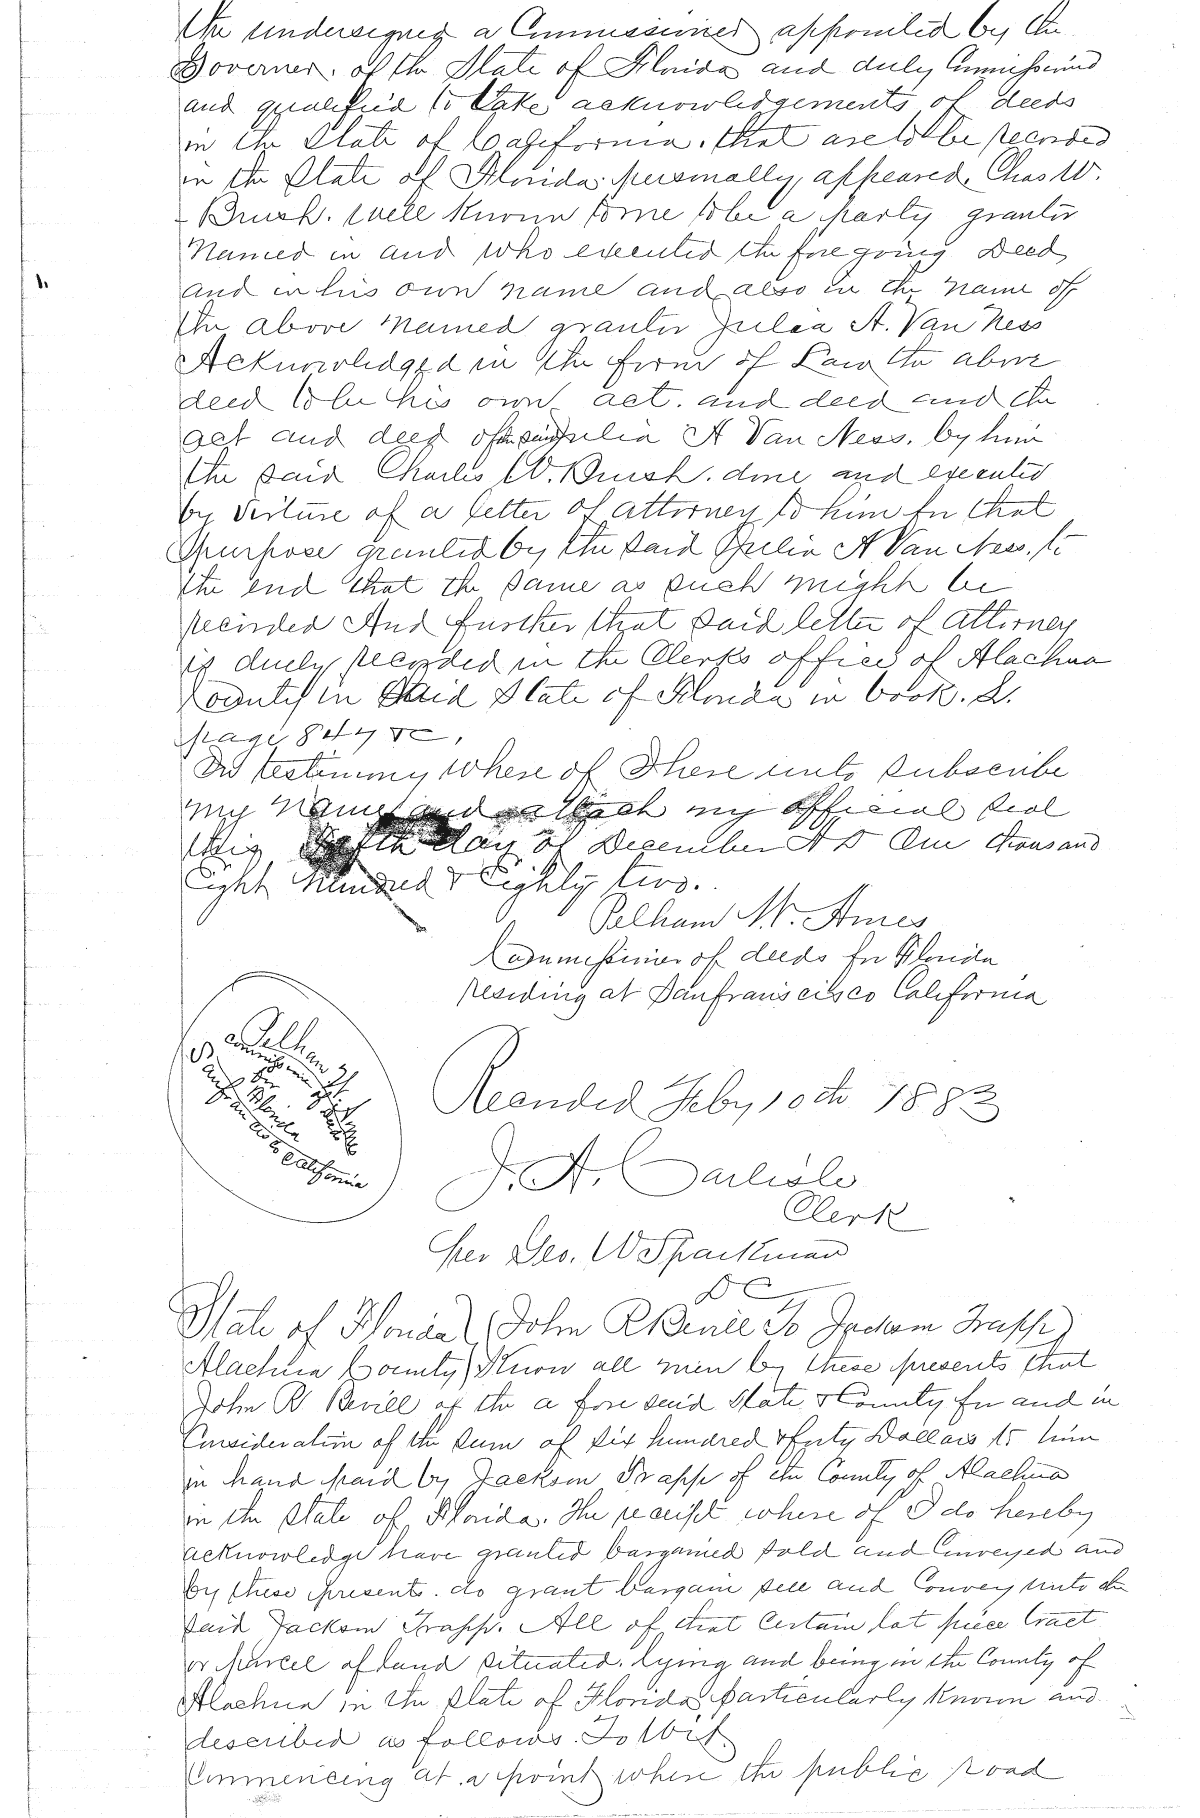 the undersigned a Commissioner appointed by the
Governer. of the State of Florida and duly Commissioned
and qualified to take acknowledgements of deeds
in the State of California. that are to be recorded
in the State of Florida. personally appeared. Chas W.
Brush. well known to me to be a party grantor
Named in and who executed the fore going Deed
and in his own name and also in the name of
the above named grantor Julia A. Van Ness
Acknowledged in the form of Law the above
deed to be his own act. and deed and the
act and deed of the said Julia A Van Ness. by him
the said Charles W. Brush. done and executed
by virture of a letter of attorney to him for that
purpose granted by the said Julia A Van Ness. to
the end that the same as such might be
recorded And further that said letter of attorney
is duely recorded in the Clerks office of Alachua
County in Said State of Florida in book. L.
page 847 &c.
In testimony where of I here unto subscribe
my name and attach my official seal
this Fifth day of December A D One thousand
Eight hundred & Eighty two.
Pelham W. Ames
Commissioner of deeds for Florida
residing at Sanfranscisco California
Pelham W.
Commissioner of deeds
for Florida
Sanfrancisco California
Recorded Feby 10th 1883
J. A. Carlisle
Clerk
per Geo. W Sparkman
DC
State of Florida) (John R Bevill To Jackson Trapp)
Alachua County) Know all men by these presents that
John R. Bevill of the a fore said State & County for and in
Consideration of the sum of six hundred & forty Dollars to him
in hand paid by Jackson Trapp of the County of Alachua
in the State of Florida. The receipt where of I do hereby
acknowledge have granted bargained sold and Conveyed and
by these presents. do grant bargain sell and Convey unto the
said Jackson Trapp. All of that Certain lot piece tract
or parcel of land situated. lying and being in the County of
Alachua in the State of Florida particularly known and
described as follows. To Wit
Commencing at a point where the public road